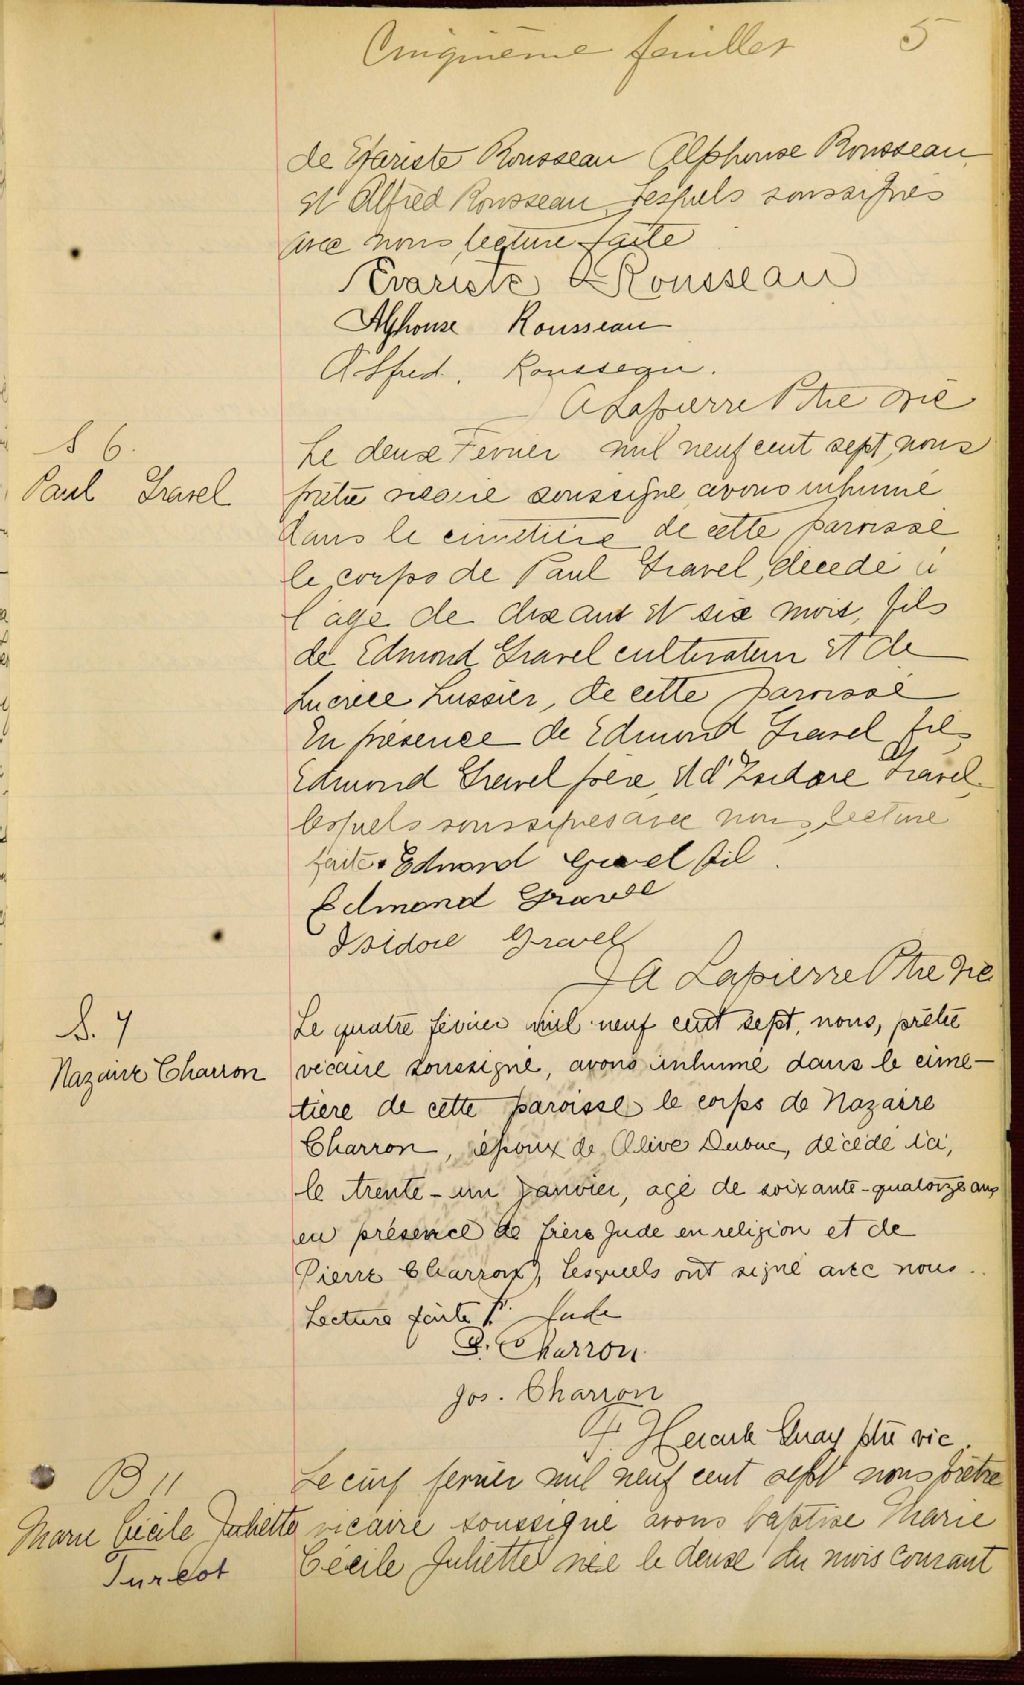 Cinquième feuillet 5
de Evariste Rousseau Alphonse Rousseau
et Alfred Rousseau, lesquels soussignés
avec nous, lecture faite
Evariste Rousseau
Alphonse Rousseau
Alfred. Rousseau.
A Lapierre Ptre vic
S 6.
Paul Gravel
Le deux Fevrier mil neuf cent sept, nous
prêtre vicaire soussigné, avons inhumé
dans le cimetière de cette paroisse
le corps de Paul Gravel, décédé à
l'age de dix ans et six mois, fils
de Edmond Gravel cultivateur et de
Lucrèce Lussier, de cette paroisse
En présence de Edmond Gravel fils,
Edmond Gravel père, et d'Isidore Gravel,
lesquels soussignés avec nous, lecture
faite. Edmond Gravel fil.
Edmond Gravel
Isidore Gravel
A Lapierre Ptre Vic
S. 7
Nazaire Charron
Le quatre février mil neuf cent sept, nous, prêtre
vicaire soussigné, avons inhumé dans le cime-
tière de cette paroisse le corps de Nazaire
Charron, époux de Olive Dubuc, décédé ici,
le trente-un janvier, agé de soixante-quatorze ans
en présence de frère Jude en religion et de
Pierre Charron, lesquels ont signé avec nous..
Lecture faite f. Jude
P. Charron.
Jos. Charron
F. Hercule Guay ptre vic.
B 11
Marie Cécile Juliette
Turcot
Le cinq fevrier mil neuf cent sept nous prêtre
vicaire soussigné avons baptisé Marie
Cécile Juliette née le deux du mois courant